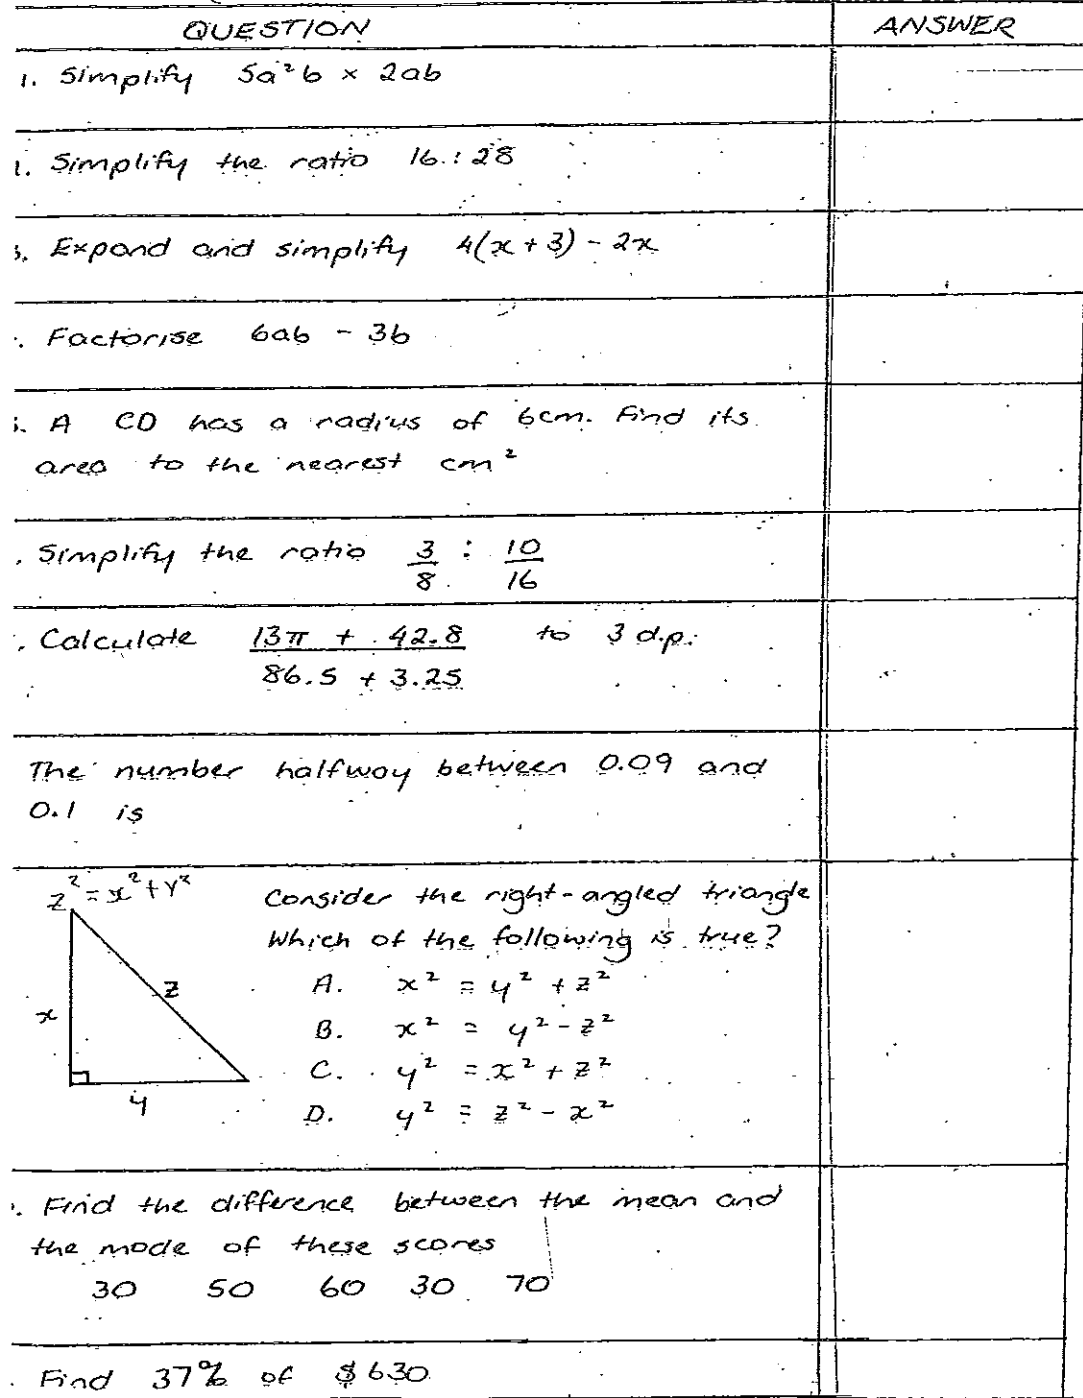 QUESTION ANSWER
1. Simplify 5a²b × 2ab
1. Simplify the ratio 16 : 28
3. Expand and simplify 4(x + 3) - 2x
. Factorise 6ab - 3b
. A CD has a radius of 6cm. Find its
area to the nearest cm²
. Simplify the ratio 3/8 : 10/16
. Calculate 13π + 42.8 to 3 d.p.
86.5 + 3.25
The number halfway between 0.09 and
0.1 is
z² = x² + y²
Consider the right-angled triangle
Which of the following is true?
A. x² = y² + z²
B. x² = y² - z²
C. y² = x² + z²
D. y² = z² - x²
x
z
y
. Find the difference between the mean and
the mode of these scores
30 50 60 30 70
. Find 37% of $630